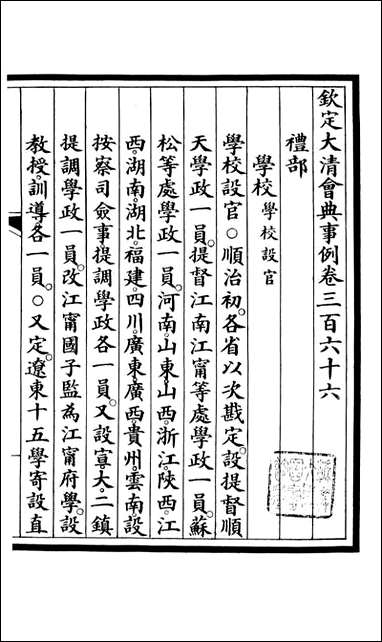 欽定大清會典事例卷三百六十六
禮部
學校學校設官
學校設官○順治初。各省以次戡定。設提督順
天學政一員。提督江南江甯等處學政一員。蘇
松等處學政一員。河南。山東。山西。浙江。陝西。江
西。湖南。湖北。福建。四川。廣東。廣西。貴州。雲南。設
按察司僉事提調學政各一員。又設宣。大。二鎮
提調學政一員。改江甯國子監為江甯府學。設
教授。訓導各一員。○又定。遼東十五學寄設直